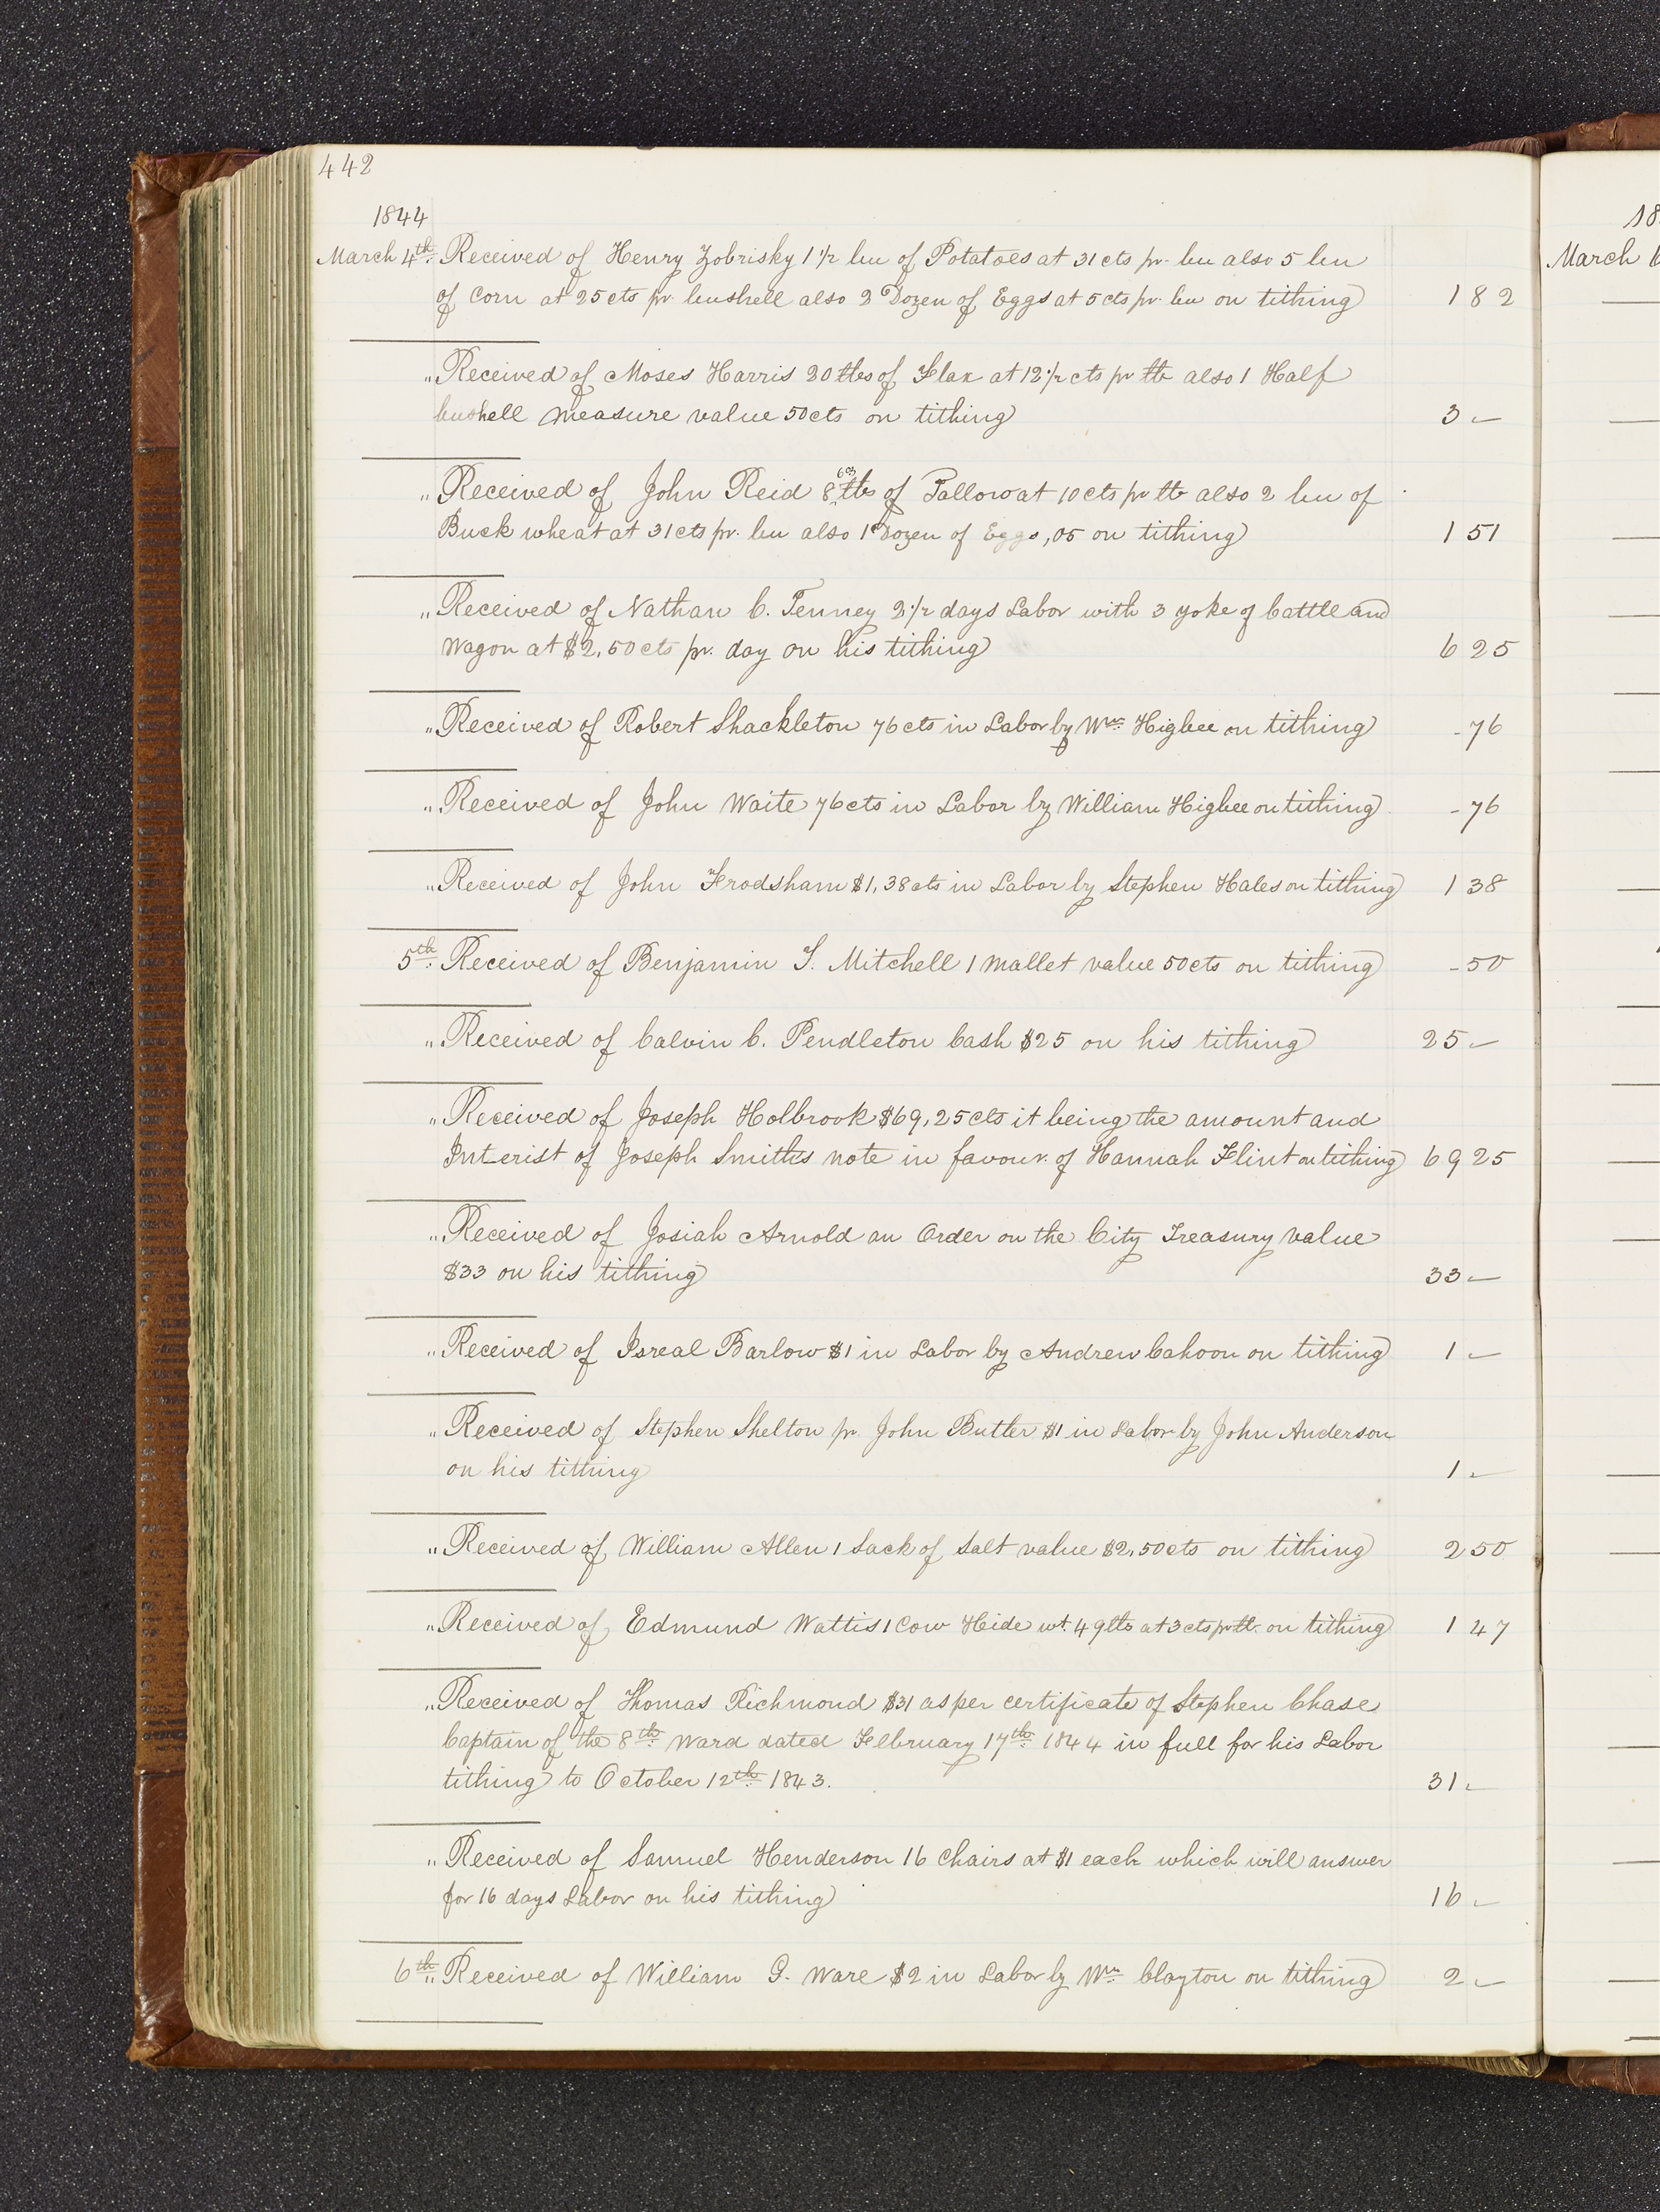 442
1844
March 4th. Received of Henry Zobrisky 1 1/2 bu of Potatoes at 31 cts pr. bu also 5 bu
of Corn at 25 cts pr. bushell also 2 Dozen of Eggs at 5 cts pr. bu on tithing 1 82
" Received of Moses Harris 20 lbs of Flax at 12 1/2 cts pr lb also 1 Half
bushell measure value 50 cts on tithing 3 -
" Received of John Reid 8 lbs 6 oz of Tallow at 10 cts pr lb also 2 bu of
Buck wheat at 31 cts pr. bu also 1 Dozen of Eggs ,05 on tithing 1 51
" Received of Nathan C. Tenney 2 1/2 days Labor with 3 yoke of Cattle and
Wagon at $2,50 cts pr. day on his tithing 6 25
" Received of Robert Shackleton 76 cts in Labor by Wm. Higbee on tithing - 76
" Received of John Waite 76 cts in Labor by William Higbee on tithing - 76
" Received of John Frodsham $1,38 cts in Labor by Stephen Hales on tithing 1 38
5th. Received of Benjamin T. Mitchell 1 mallet value 50 cts on tithing - 50
" Received of Calvin C. Pendleton Cash $25 on his tithing 25 -
" Received of Joseph Holbrook $69,25 cts it being the amount and
Interist of Joseph Smiths note in favour. of Hannah Flint on tithing 69 25
" Received of Josiah Arnold an Order on the City Treasury value
$33 on his tithing 33 -
" Received of Isreal Barlow $1 in Labor by Andrew Cahoon on tithing 1 -
" Received of Stephen Shelton pr John Butler $1 in Labor by John Anderson
on his tithing 1 -
" Received of William Allen 1 Sack of Salt value $2,50 cts on tithing 2 50
" Received of Edmund Wattis 1 Cow Hide wt. 49 lbs at 3 cts pr lb. on tithing 1 47
" Received of Thomas Richmond $31 as per certificate of Stephen Chase
Captain of the 8th. Ward dated Felbruary 17th. 1844 in full for his Labor
tithing to October 12th. 1843. 31 -
" Received of Samuel Henderson 16 Chairs at $1 each which will answer
for 16 days Labor on his tithing 16 -
6th. " Received of William G. Ware $2 in Labor by Wm. Clayton on tithing 2 -
18
March 6